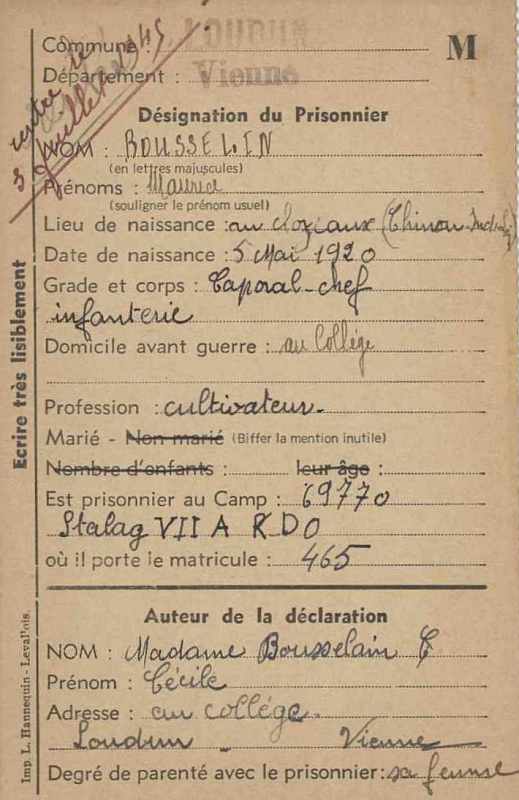 Commune : LOUDUN M
Département : Vienne
rentré le
3 Juillet 1945
Désignation du Prisonnier
NOM : BOUSSELIN
(en lettres majuscules)
Prénoms : Maurice
(souligner le prénom usuel)
Lieu de naissance : au (Chinon
Date de naissance : 5 Mai 1920
Grade et corps : Caporal-chef
infanterie
Domicile avant guerre : au Collége
Profession : cultivateur.
Marié - Non marié (Biffer la mention inutile)
Nombre d'enfants : leur âge :
Est prisonnier au Camp : 69770
Stalag VII A KDO
où il porte le matricule : 465
Auteur de la déclaration
NOM : Madame Bousselain C
Prénom : Cécile
Adresse : au collége.
Loudun - Vienne
Degré de parenté avec le prisonnier : sa femme
Ecrire très lisiblement
Imp. L. Hannequin - Levallois.